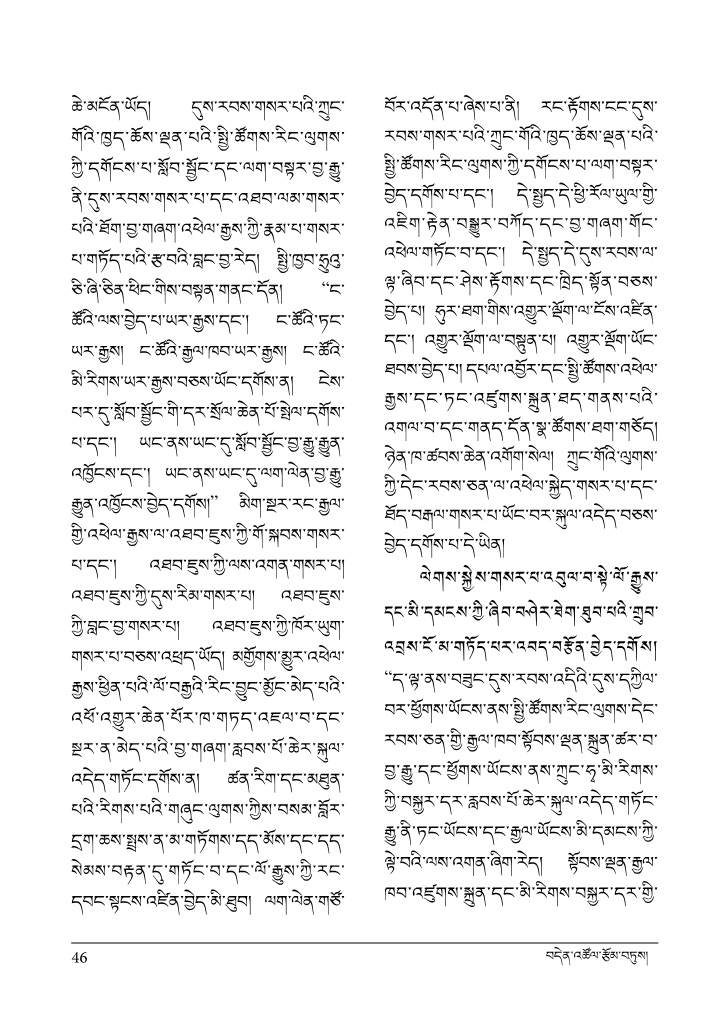 ཆེ་མངོན་ཡོད། དུས་རབས་གསར་པའི་ཀྲུང་
གོའི་ཁྱད་ཆོས་ལྡན་པའི་སྤྱི་ཚོགས་རིང་ལུགས་
ཀྱི་དགོངས་པ་སློབ་སྦྱོང་དང་ལག་བསྟར་བྱ་རྒྱུ་
ནི་དུས་རབས་གསར་པ་དང་འཐབ་ལམ་གསར་
པའི་ཐོག་བྱ་གཞག་འཕེལ་རྒྱས་ཀྱི་རྣམ་པ་གསར་
པ་གཏོད་པའི་རྩ་བའི་བླང་བྱ་རེད། སྤྱི་ཁྱབ་ཧྲུའུ་
ཅི་ཞི་ཅིན་ཕིང་གིས་བསྟན་གནང་དོན། “ང་
ཚོའི་ལས་བྱེད་པ་ཡར་རྒྱས་དང་། ང་ཚོའི་ཏང་
ཡར་རྒྱས། ང་ཚོའི་རྒྱལ་ཁབ་ཡར་རྒྱས། ང་ཚོའི་
མི་རིགས་ཡར་རྒྱས་བཅས་ཡོང་དགོས་ན། ངེས་
པར་དུ་སློབ་སྦྱོང་གི་དར་སྲོལ་ཆེན་པོ་སྤེལ་དགོས་
པ་དང་། ཡང་ནས་ཡང་དུ་སློབ་སྦྱོང་བྱ་རྒྱུ་རྒྱུན་
འཁྱོངས་དང་། ཡང་ནས་ཡང་དུ་ལག་ལེན་བྱ་རྒྱུ་
རྒྱུན་འཁྱོངས་བྱེད་དགོས།” མིག་སྔར་རང་རྒྱལ་
གྱི་འཕེལ་རྒྱས་ལ་འཐབ་ཇུས་ཀྱི་གོ་སྐབས་གསར་
པ་དང་། འཐབ་ཇུས་ཀྱི་ལས་འགན་གསར་པ།
འཐབ་ཇུས་ཀྱི་དུས་རིམ་གསར་པ། འཐབ་ཇུས་
ཀྱི་བླང་བྱ་གསར་པ། འཐབ་ཇུས་ཀྱི་ཁོར་ཡུག་
གསར་པ་བཅས་འཕྲད་ཡོད། མགྱོགས་མྱུར་འཕེལ་
རྒྱས་ཕྱིན་པའི་ལོ་བརྒྱའི་རིང་བྱུང་མྱོང་མེད་པའི་
འཕོ་འགྱུར་ཆེན་པོར་ཁ་གཏད་འཇལ་བ་དང་
སྔར་ན་མེད་པའི་བྱ་གཞག་རླབས་པོ་ཆེར་སྐུལ་
འདེད་གཏོང་དགོས་ན། ཚན་རིག་དང་མཐུན་
པའི་རིགས་པའི་གཞུང་ལུགས་ཀྱིས་བསམ་བློར་
དྲག་ཆས་སྤྲས་ན་མ་གཏོགས་དད་མོས་དང་དད་
སེམས་བརྟན་དུ་གཏོང་བ་དང་ལོ་རྒྱུས་ཀྱི་རང་
དབང་སྟངས་འཛིན་བྱེད་མི་ཐུབ། ལག་ལེན་གཙོ་
བོར་འདོན་པ་ཞེས་པ་ནི། རང་རྟོགས་ངང་དུས་
རབས་གསར་པའི་ཀྲུང་གོའི་ཁྱད་ཆོས་ལྡན་པའི་
སྤྱི་ཚོགས་རིང་ལུགས་ཀྱི་དགོངས་པ་ལག་བསྟར་
བྱེད་དགོས་པ་དང་། དེ་སྤྱད་དེ་ཕྱི་རོལ་ཡུལ་གྱི་
འཇིག་རྟེན་བསྒྱུར་བཀོད་དང་བྱ་གཞག་གོང་
འཕེལ་གཏོང་བ་དང་། དེ་སྤྱད་དེ་དུས་རབས་ལ་
ལྟ་ཞིབ་དང་ཤེས་རྟོགས་དང་ཁྲིད་སྟོན་བཅས་
བྱེད་པ། ཧུར་ཐག་གིས་འགྱུར་ལྡོག་ལ་ངོས་འཛིན་
དང་། འགྱུར་ལྡོག་ལ་བསྟུན་པ། འགྱུར་ལྡོག་ཡོང་
ཐབས་བྱེད་པ། དཔལ་འབྱོར་དང་སྤྱི་ཚོགས་འཕེལ་
རྒྱས་དང་ཏང་འཛུགས་སྐྲུན་ཐད་གནས་པའི་
འགལ་བ་དང་གནད་དོན་སྣ་ཚོགས་ཐག་གཅོད།
ཉེན་ཁ་ཚབས་ཆེན་འགོག་སེལ། ཀྲུང་གོའི་ལུགས་
ཀྱི་དེང་རབས་ཅན་ལ་འཕེལ་སྐྱེད་གསར་པ་དང་
ཐོད་བརྒལ་གསར་པ་ཡོང་བར་སྐུལ་འདེད་བཅས་
བྱེད་དགོས་པ་དེ་ཡིན།
ལེགས་སྐྱེས་གསར་པ་འབུལ་བ་སྟེ་ལོ་རྒྱུས་
དང་མི་དམངས་ཀྱི་ཞིབ་བཤེར་ཐེག་ཐུབ་པའི་གྲུབ་
འབྲས་ངོ་མ་གཏོད་པར་འབད་བརྩོན་བྱེད་དགོས།
“ད་ལྟ་ནས་བཟུང་དུས་རབས་འདིའི་དུས་དཀྱིལ་
བར་ཕྱོགས་ཡོངས་ནས་སྤྱི་ཚོགས་རིང་ལུགས་དེང་
རབས་ཅན་གྱི་རྒྱལ་ཁབ་སྟོབས་ལྡན་སྐྲུན་ཚར་བ་
བྱ་རྒྱུ་དང་ཕྱོགས་ཡོངས་ནས་ཀྲུང་ཧྭ་མི་རིགས་
ཀྱི་བསྐྱར་དར་རླབས་པོ་ཆེར་སྐུལ་འདེད་གཏོང་
རྒྱུ་ནི་ཏང་ཡོངས་དང་རྒྱལ་ཡོངས་མི་དམངས་ཀྱི་
ལྟེ་བའི་ལས་འགན་ཞིག་རེད། སྟོབས་ལྡན་རྒྱལ་
ཁབ་འཛུགས་སྐྲུན་དང་མི་རིགས་བསྐྱར་དར་གྱི་
46
བདེན་འཚོལ་རྩོམ་བཏུས།